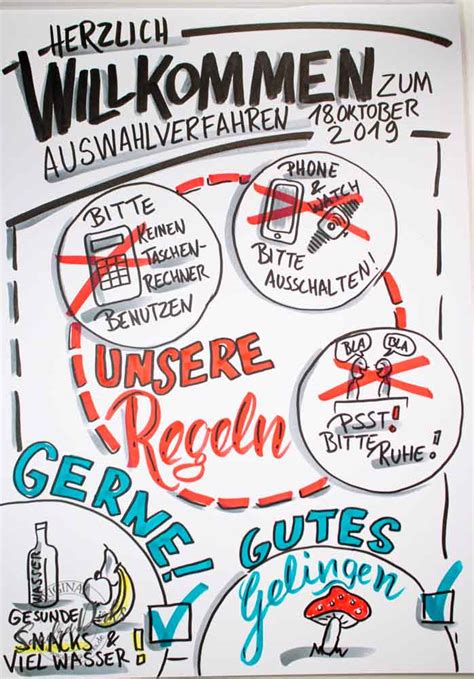 HERZLICH
WILLKOMMEN ZUM
AUSWAHLVERFAHREN 18.OKTOBER
2019
BITTE
KEINEN
TASCHEN-
RECHNER
BENUTZEN
PHONE
&
WATCH
BITTE
AUSSCHALTEN!
UNSERE
Regeln
BLA BLA
PSST!
BITTE
RUHE!
GERNE!
WASSER
GESUNDE
SNACKS &
VIEL WASSER!
GUTES
Gelingen